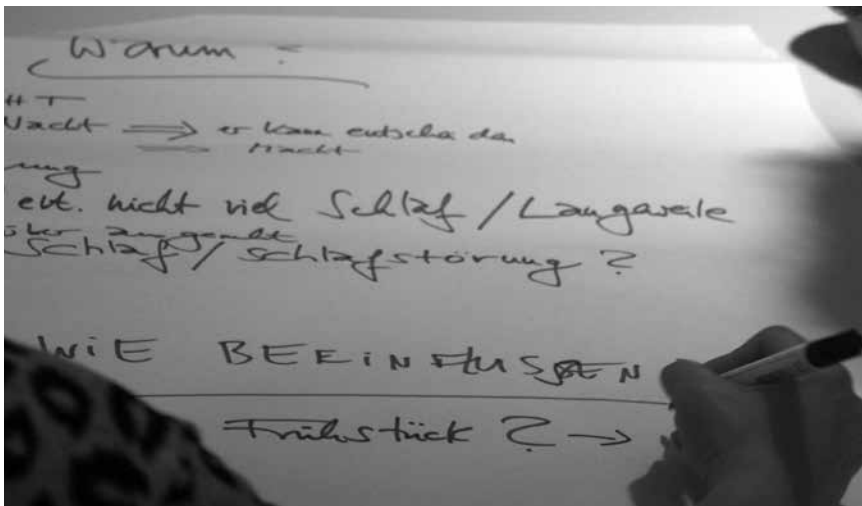 Warum :
HT
Nacht ⇒ er kann entscheiden
⇒ Macht
rung
evt. nicht viel Schlaf / Langeweile
Schlaf / Schlafstörung ?
WIE BEEINFLUSSEN
Frühstück ? →